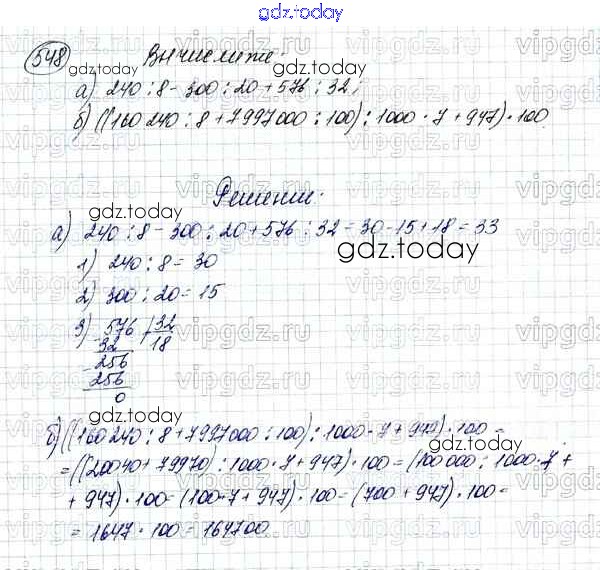 gdz.today
548 Вычислите:
gdz.today gdz.today
а) 240 : 8 - 300 : 20 + 576 : 32;
б) ((160 240 : 8 + 7997000 : 100) : 1000 · 7 + 947) · 100
Решение.
gdz.today
а) 240 : 8 - 300 : 20 + 576 : 32 = 30 - 15 + 18 = 33
gdz.today
1) 240 : 8 = 30
2) 300 : 20 = 15
3) 576 | 32
- 32 18
- 256
256
0
gdz.today
б) ((160 240 : 8 + 7997000 : 100) : 1000 · 7 + 947) · 100 =
gdz.today
= ((20040 + 79970) : 1000 · 7 + 947) · 100 = (100 000 : 1000 · 7 +
+ 947) · 100 = (100 · 7 + 947) · 100 = (700 + 947) · 100 =
gdz.today
= 1647 · 100 = 164700.
vipgdz.ru